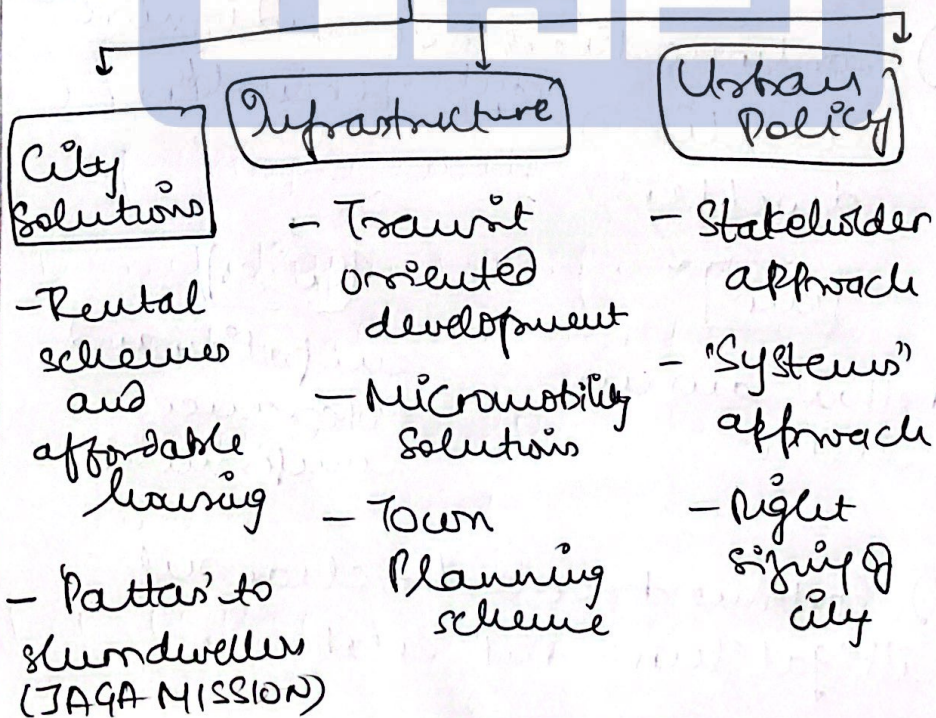 City
Solutions
- Rental
schemes
and
affordable
housing
- 'Pattas' to
slumdwellers
(JAGA MISSION)
Infrastructure
- Transit
oriented
development
- Micromobility
Solutions
- Town
Planning
scheme
Urban
Policy
- Stakeholder
approach
- "Systems"
approach
- Right
sizing of
city